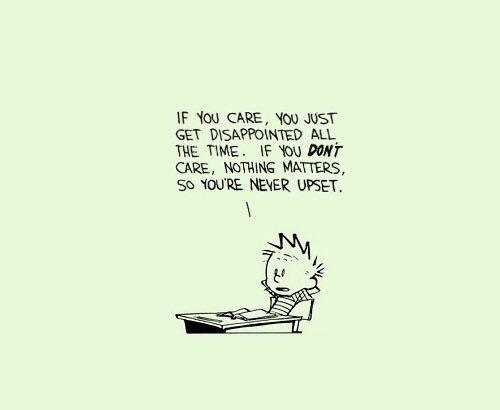 IF YOU CARE, YOU JUST
GET DISAPPOINTED ALL
THE TIME. IF YOU DON'T
CARE, NOTHING MATTERS,
SO YOU'RE NEVER UPSET.